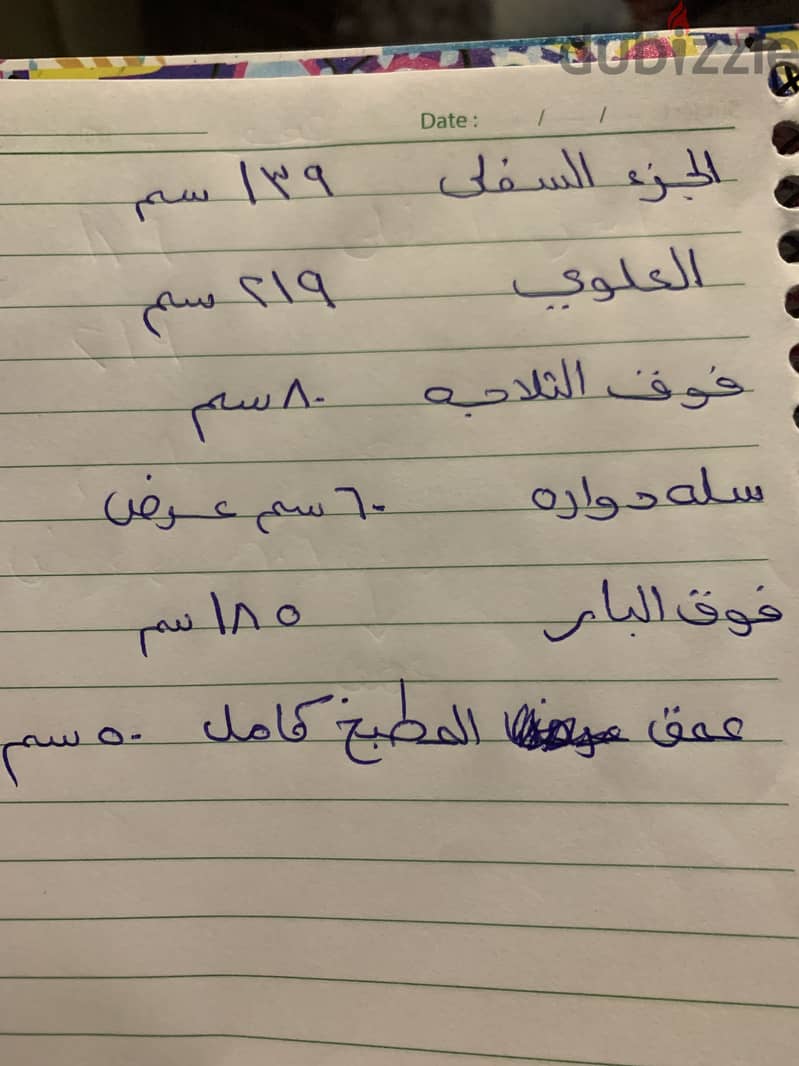 dubizzle
Date : / /
الجزء السفلى ١٣٩ سم
العلوي ٢١٩ سم
فوق التلاجه ٨٠ سم
سله دواره ٦٠ سم عرض
فوق البار ١٨٥ سم
عمق المطبخ كامل ٥٠ سم